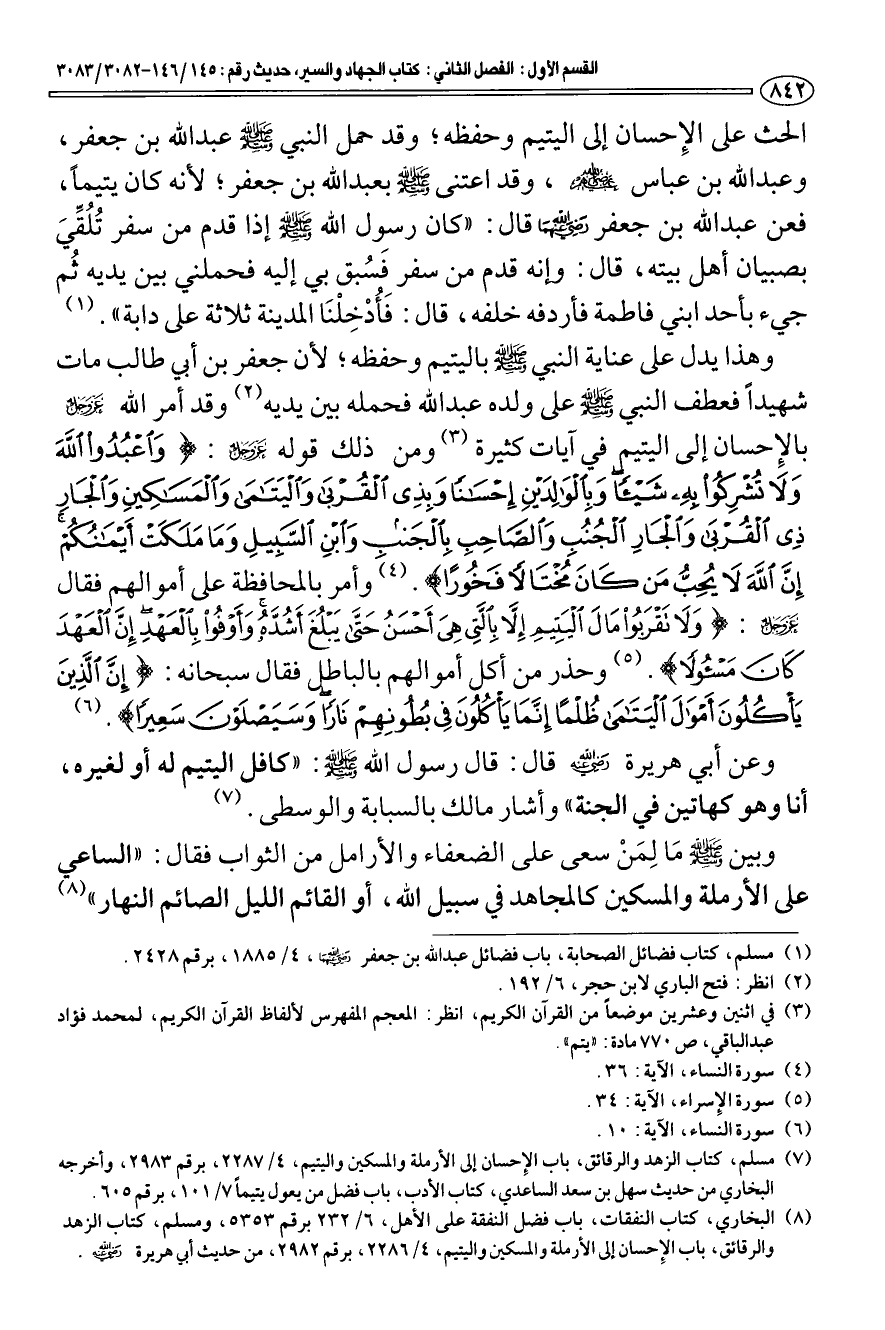 القسم الأول: الفصل الثاني: كتاب الجهاد والسير، حديث رقم: ١٤٥/ ١٤٦-٣٠٨٢/ ٣٠٨٣
٨٤٢
الحث على الإحسان إلى اليتيم وحفظه؛ وقد حمل النبي ﷺ عبدالله بن جعفر،
وعبدالله بن عباس رضي الله عنهم، وقد اعتنى ﷺ بعبدالله بن جعفر؛ لأنه كان يتيماً،
فعن عبدالله بن جعفر رضي الله عنهما قال: «كان رسول الله ﷺ إذا قدم من سفر تُلُقِّيَ
بصبيان أهل بيته، قال: وإنه قدم من سفر فَسُبق بي إليه فحملني بين يديه ثُم
جيء بأحد ابني فاطمة فأردفه خلفه، قال: فَأُدْخِلْنَا المدينة ثلاثة على دابة». (١)
وهذا يدل على عناية النبي ﷺ باليتيم وحفظه؛ لأن جعفر بن أبي طالب مات
شهيداً فعطف النبي ﷺ على ولده عبدالله فحمله بين يديه(٢) وقد أمر الله عز وجل
بالإحسان إلى اليتيم في آيات كثيرة (٣) ومن ذلك قوله عز وجل: ﴿ وَٱعۡبُدُواْ ٱللَّهَ
وَلَا تُشۡرِكُواْ بِهِۦ شَيۡـٔٗاۖ وَبِٱلۡوَٰلِدَيۡنِ إِحۡسَٰنٗا وَبِذِي ٱلۡقُرۡبَىٰ وَٱلۡيَتَٰمَىٰ وَٱلۡمَسَٰكِينِ وَٱلۡجَارِ
ذِي ٱلۡقُرۡبَىٰ وَٱلۡجَارِ ٱلۡجُنُبِ وَٱلصَّاحِبِ بِٱلۡجَنۢبِ وَٱبۡنِ ٱلسَّبِيلِ وَمَا مَلَكَتۡ أَيۡمَٰنُكُمۡۗ
إِنَّ ٱللَّهَ لَا يُحِبُّ مَن كَانَ مُخۡتَالٗا فَخُورًا﴾. (٤) وأمر بالمحافظة على أموالهم فقال
عز وجل: ﴿ وَلَا تَقۡرَبُواْ مَالَ ٱلۡيَتِيمِ إِلَّا بِٱلَّتِي هِيَ أَحۡسَنُ حَتَّىٰ يَبۡلُغَ أَشُدَّهُۥۚ وَأَوۡفُواْ بِٱلۡعَهۡدِۖ إِنَّ ٱلۡعَهۡدَ
كَانَ مَسۡـُٔولٗا﴾. (٥) وحذر من أكل أموالهم بالباطل فقال سبحانه: ﴿ إِنَّ ٱلَّذِينَ
يَأۡكُلُونَ أَمۡوَٰلَ ٱلۡيَتَٰمَىٰ ظُلۡمًا إِنَّمَا يَأۡكُلُونَ فِي بُطُونِهِمۡ نَارٗاۖ وَسَيَصۡلَوۡنَ سَعِيرٗا﴾. (٦)
وعن أبي هريرة رضي الله عنه قال: قال رسول الله ﷺ: «كافل اليتيم له أو لغيره،
أنا وهو كهاتين في الجنة» وأشار مالك بالسبابة والوسطى. (٧)
وبين ﷺ مَا لِمَنْ سعى على الضعفاء والأرامل من الثواب فقال: «الساعي
على الأرملة والمسكين كالمجاهد في سبيل الله، أو القائم الليل الصائم النهار»(٨)
(١) مسلم، كتاب فضائل الصحابة، باب فضائل عبدالله بن جعفر رضي الله عنهما، ٤/ ١٨٨٥، برقم ٢٤٢٨.
(٢) انظر: فتح الباري لابن حجر، ٦/ ١٩٢.
(٣) في اثنين وعشرين موضعاً من القرآن الكريم، انظر: المعجم المفهرس لألفاظ القرآن الكريم، لمحمد فؤاد
عبدالباقي، ص ٧٧٠ مادة: «يتم».
(٤) سورة النساء، الآية: ٣٦.
(٥) سورة الإسراء، الآية: ٣٤.
(٦) سورة النساء، الآية: ١٠.
(٧) مسلم، كتاب الزهد والرقائق، باب الإحسان إلى الأرملة والمسكين واليتيم، ٤/ ٢٢٨٧، برقم ٢٩٨٣، وأخرجه
البخاري من حديث سهل بن سعد الساعدي، كتاب الأدب، باب فضل من يعول يتيماً ٧/ ١٠١، برقم ٦٠٥.
(٨) البخاري، كتاب النفقات، باب فضل النفقة على الأهل، ٦/ ٢٣٢ برقم ٥٣٥٣، ومسلم، كتاب الزهد
والرقائق، باب الإحسان إلى الأرملة والمسكين واليتيم، ٤/ ٢٢٨٦، برقم ٢٩٨٢، من حديث أبي هريرة رضي الله عنه.